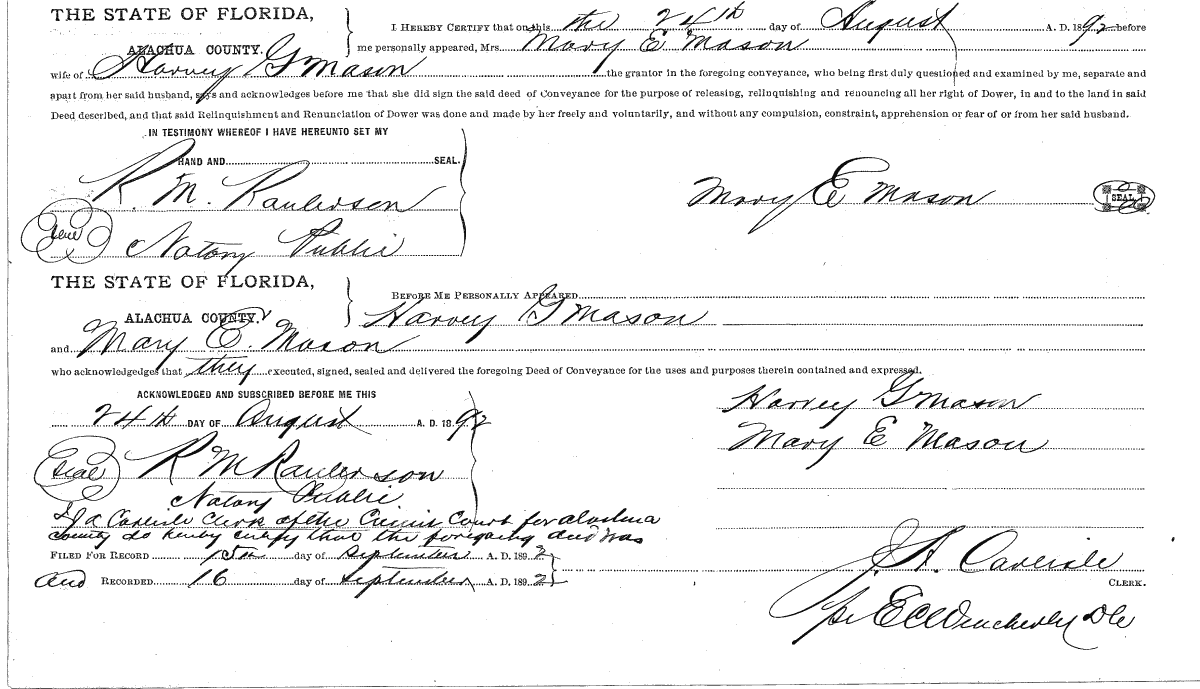 THE STATE OF FLORIDA,
ALACHUA COUNTY.
I HEREBY CERTIFY that on this the 24th day of August A. D. 1892 before
me personally appeared, Mrs. Mary E Mason
wife of Harvey G Mason the grantor in the foregoing conveyance, who being first duly questioned and examined by me, separate and
apart from her said husband, says and acknowledges before me that she did sign the said deed of Conveyance for the purpose of releasing, relinquishing and renouncing all her right of Dower, in and to the land in said
Deed described, and that said Relinquishment and Renunciation of Dower was done and made by her freely and voluntarily, and without any compulsion, constraint, apprehension or fear of or from her said husband.
IN TESTIMONY WHEREOF I HAVE HEREUNTO SET MY
HAND AND SEAL.
R. M. Raulerson
Mary E Mason SEAL
Seal Notary Public
THE STATE OF FLORIDA,
ALACHUA COUNTY.
BEFORE ME PERSONALLY APPEARED
Harvey G Mason
and Mary E. Mason
who acknowledgedges that they executed, signed, sealed and delivered the foregoing Deed of Conveyance for the uses and purposes therein contained and expressed.
ACKNOWLEDGED AND SUBSCRIBED BEFORE ME THIS
24th DAY OF August A. D. 1892
Harvey G Mason
Mary E Mason
Seal R M Raulerson
Notary Public
I J A Carlisle Clerk of the Circuit Court for Alachua
County do hereby certify that the foregoing deed was
FILED FOR RECORD 15th day of September A. D. 1892
and RECORDED 16 day of September A. D. 1892
J. A. Carlisle
CLERK.
per E C DC